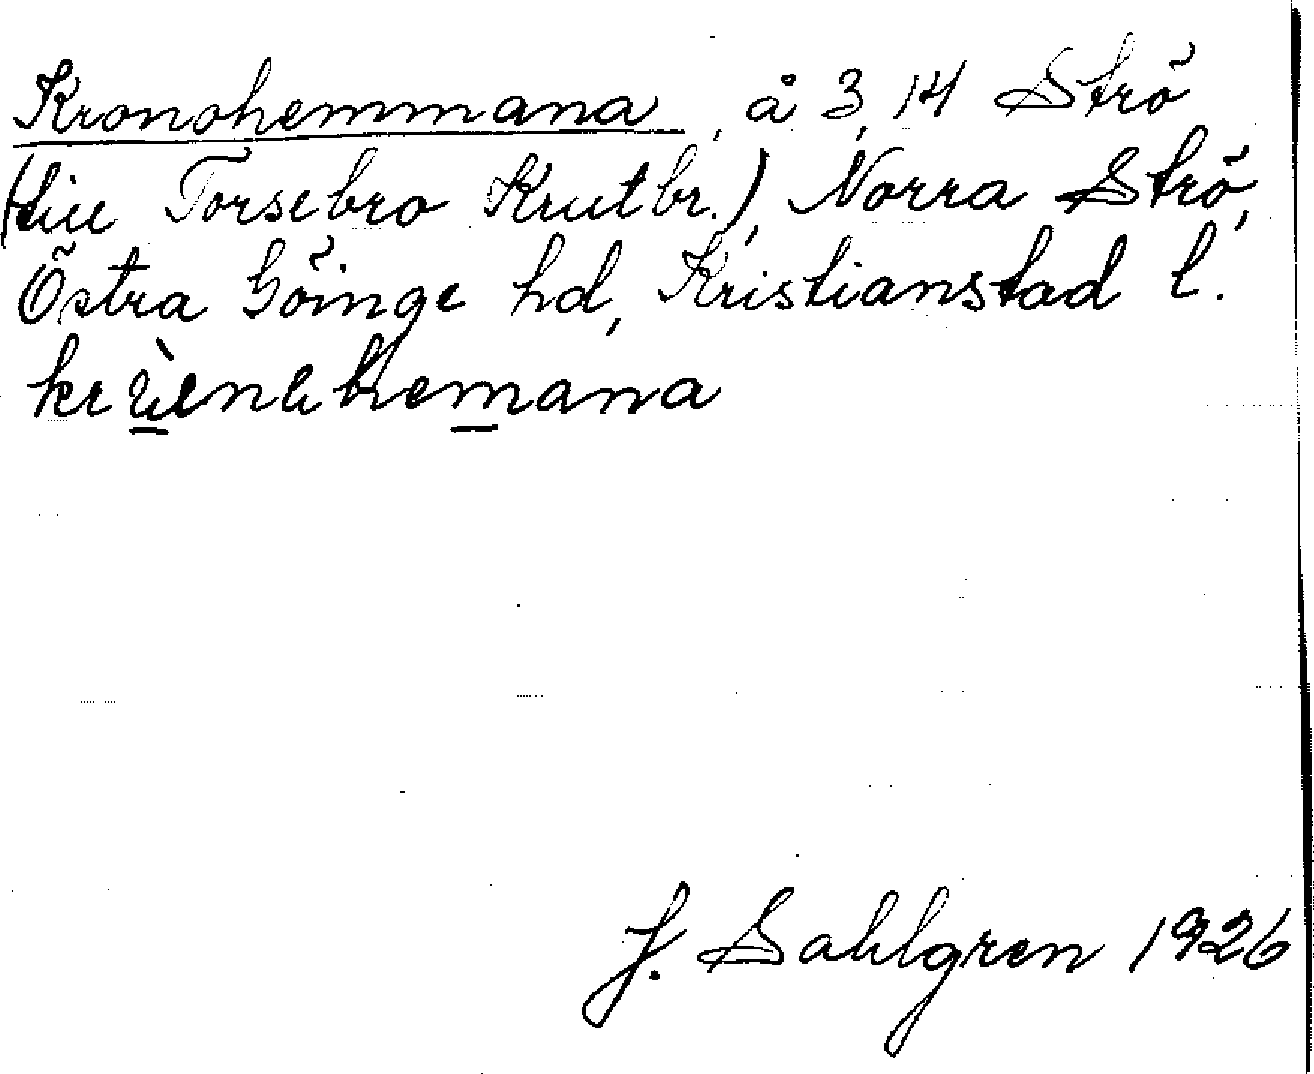 Kronohemmana, å 3, 14 Strö
(till Torsebro Krutbr.), Norra Strö,
Östra Göinge hd, Kristianstad l.
J. Sahlgren 1926